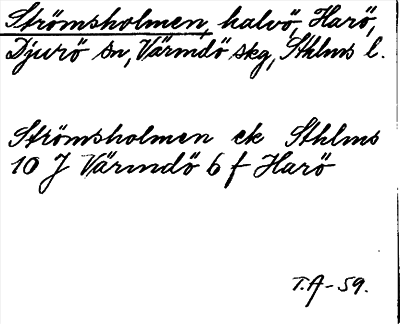 Strömsholmen, halvö, Harö,
Djurö sn, Värmdö skg, Sthlms l.
Strömsholmen ek Sthlms
10 J Värmdö 6 f Harö
T.A-59.